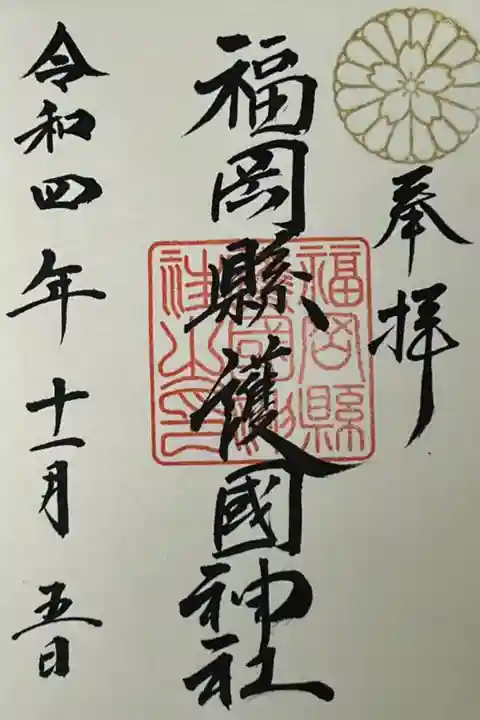 奉拝
福岡縣護國神社
福岡縣護國神社之印
令和四年十一月五日